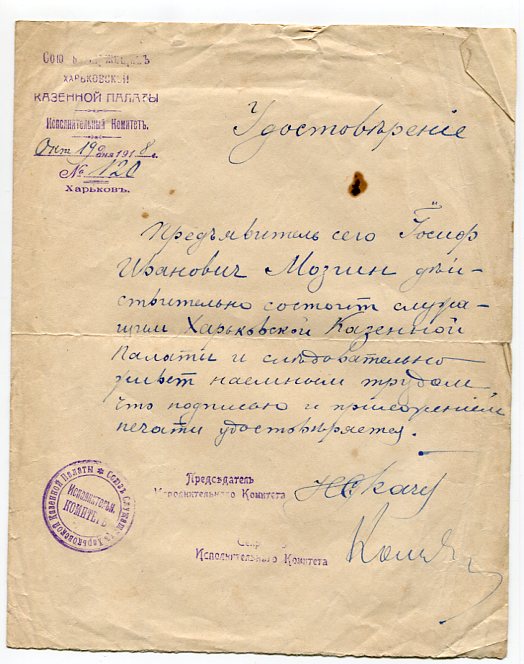 Союзъ Служащихъ
ХАРЬКОВСКОЙ
КАЗЕННОЙ ПАЛАТЫ
Исполнительный Комитетъ.
Окт 19 дня 1918 г.
№ 120
Харьковъ.
Удостовѣреніе
Предъявитель сего Іосиф
Иванович Мозгин дѣй-
ствительно состоит служа-
щим Харьковской Казенной
Палаты и слѣдовательно
живет наемным трудом
что подписью и приложением
печати удостовѣряется.
Предсѣдатель
Исполнительного Комитета
Исполнительного Комитета
Союзъ Служащ. Харьковской Казенной Палаты
Исполнительн.
КОМИТЕТЪ